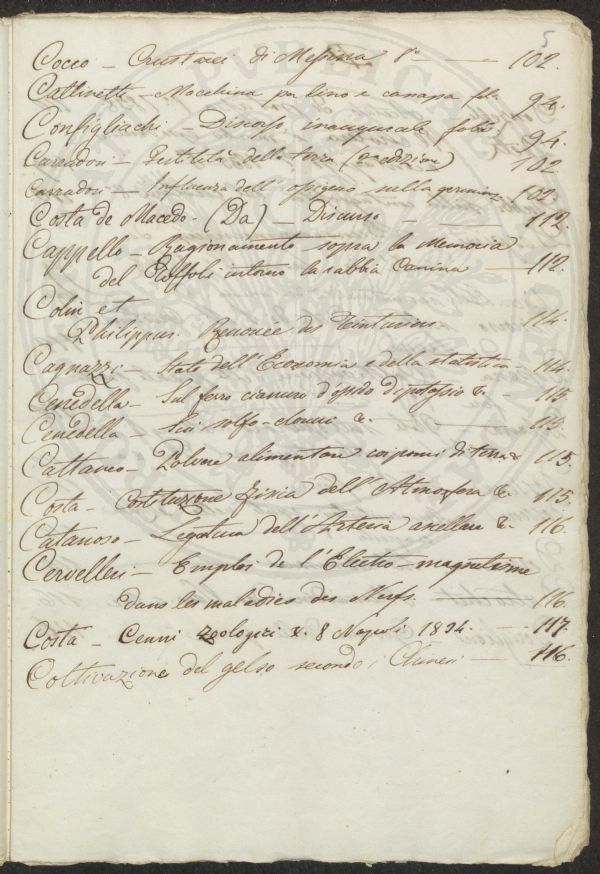 5
Cocco – Crustacei di Messina 8° – 102.
Cattinetti – Macchina per lino e canapa fol. 94.
Configliachi – Discorso inaugurale folio 94.
Carradori – Fertilità della terra (2ª edizione) 102
Carradori – Influenza dell' ossigeno nella germinaz. 102.
Costa de Macedo – (Da) – Discurso – 112.
Cappello – Ragionamento sopra la Memoria
del Toffoli intorno la rabbia Canina – 112.
Colin et
Philippar. Renouée des Teinturiers – 114.
Cagnazzi – Stato dell' Economia e della statistica – 114.
Cenedella – Sul ferro cianuro d'ossido di potassio &. – 115.
Cenedella – Sui solfo-cloruri &. – 115.
Cattaneo – Polvere alimentare coi pomi di terra & 115.
Costa – Costituzione fisica dell' Atmosfera &. 115.
Catanoso – Legatura dell' Arteria ascellare &. – 116.
Cervelleri – Emploi de l' Electro-magnetisme
dans les maladies des Nerfs. – 116.
Costa – Cenni zoologici &. 8 Napoli 1834. – 117.
Coltivazione del gelso secondo i Chinesi – 116.
PVBLICA